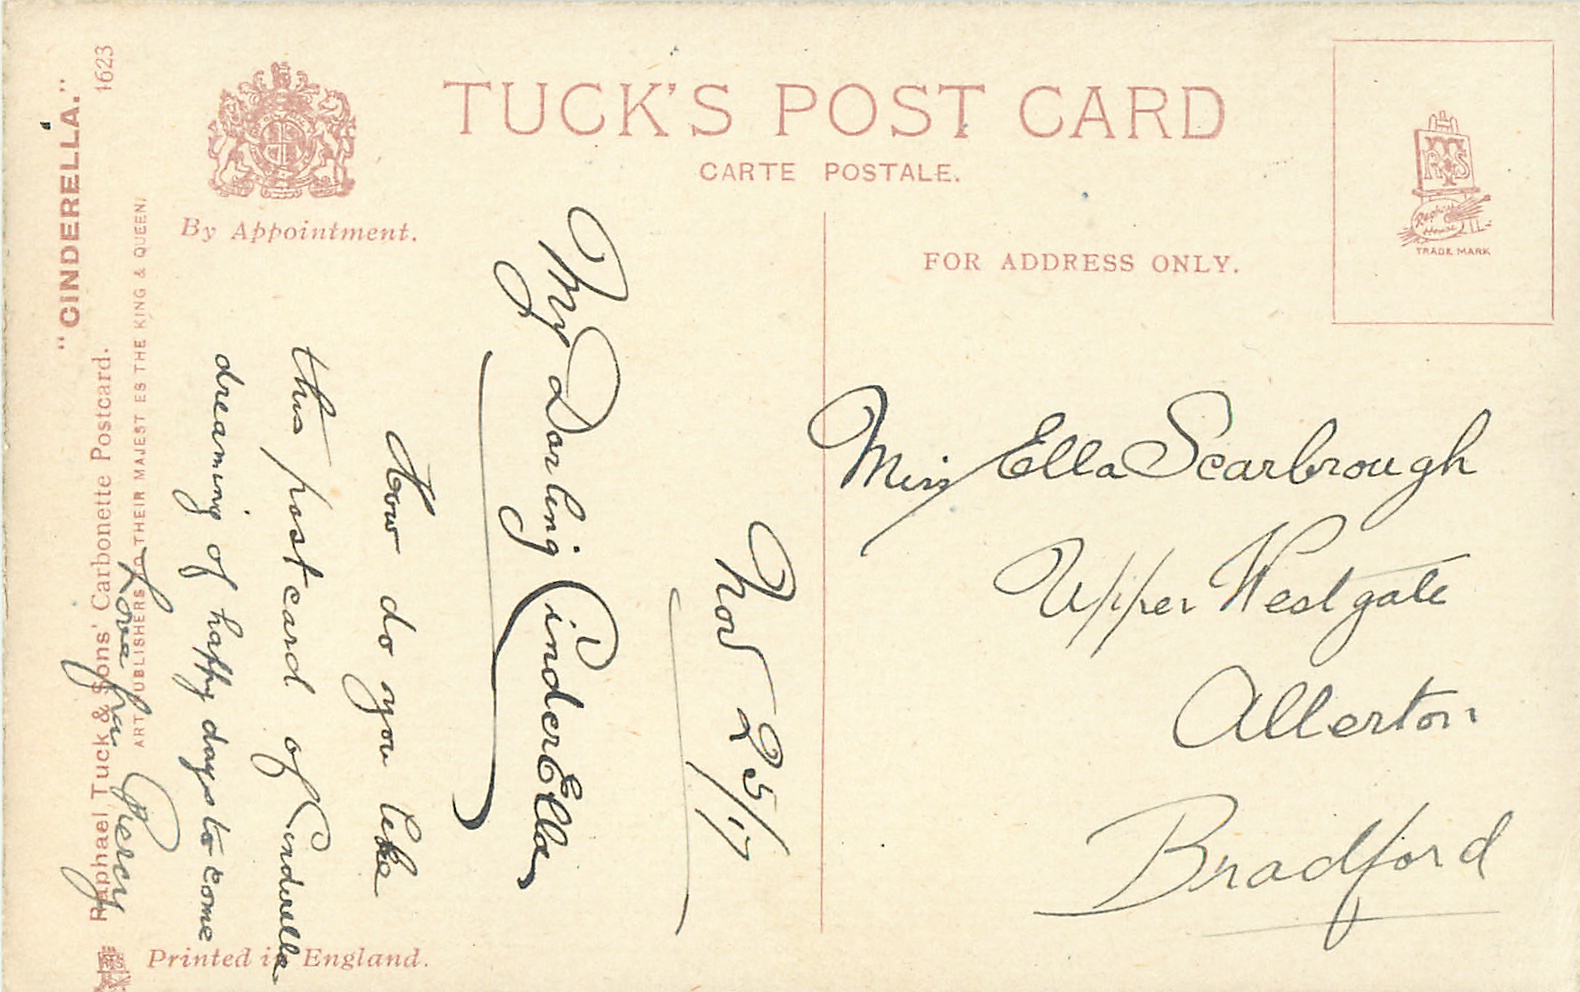 TUCK'S POST CARD
CARTE POSTALE.
By Appointment.
FOR ADDRESS ONLY.
TRSS
Raphael House
TRADE MARK
"CINDERELLA."
1623
Raphael Tuck & Sons' Carbonette Postcard.
ART PUBLISHERS TO THEIR MAJESTIES THE KING & QUEEN.
Printed in England.
Nov 25/17
My Darling CinderElla
How do you like
this postcard of Cinderella
dreaming of happy days to come
Love from Percy
Miss Ella Scarbrough
Upper Westgate
Allerton
Bradford